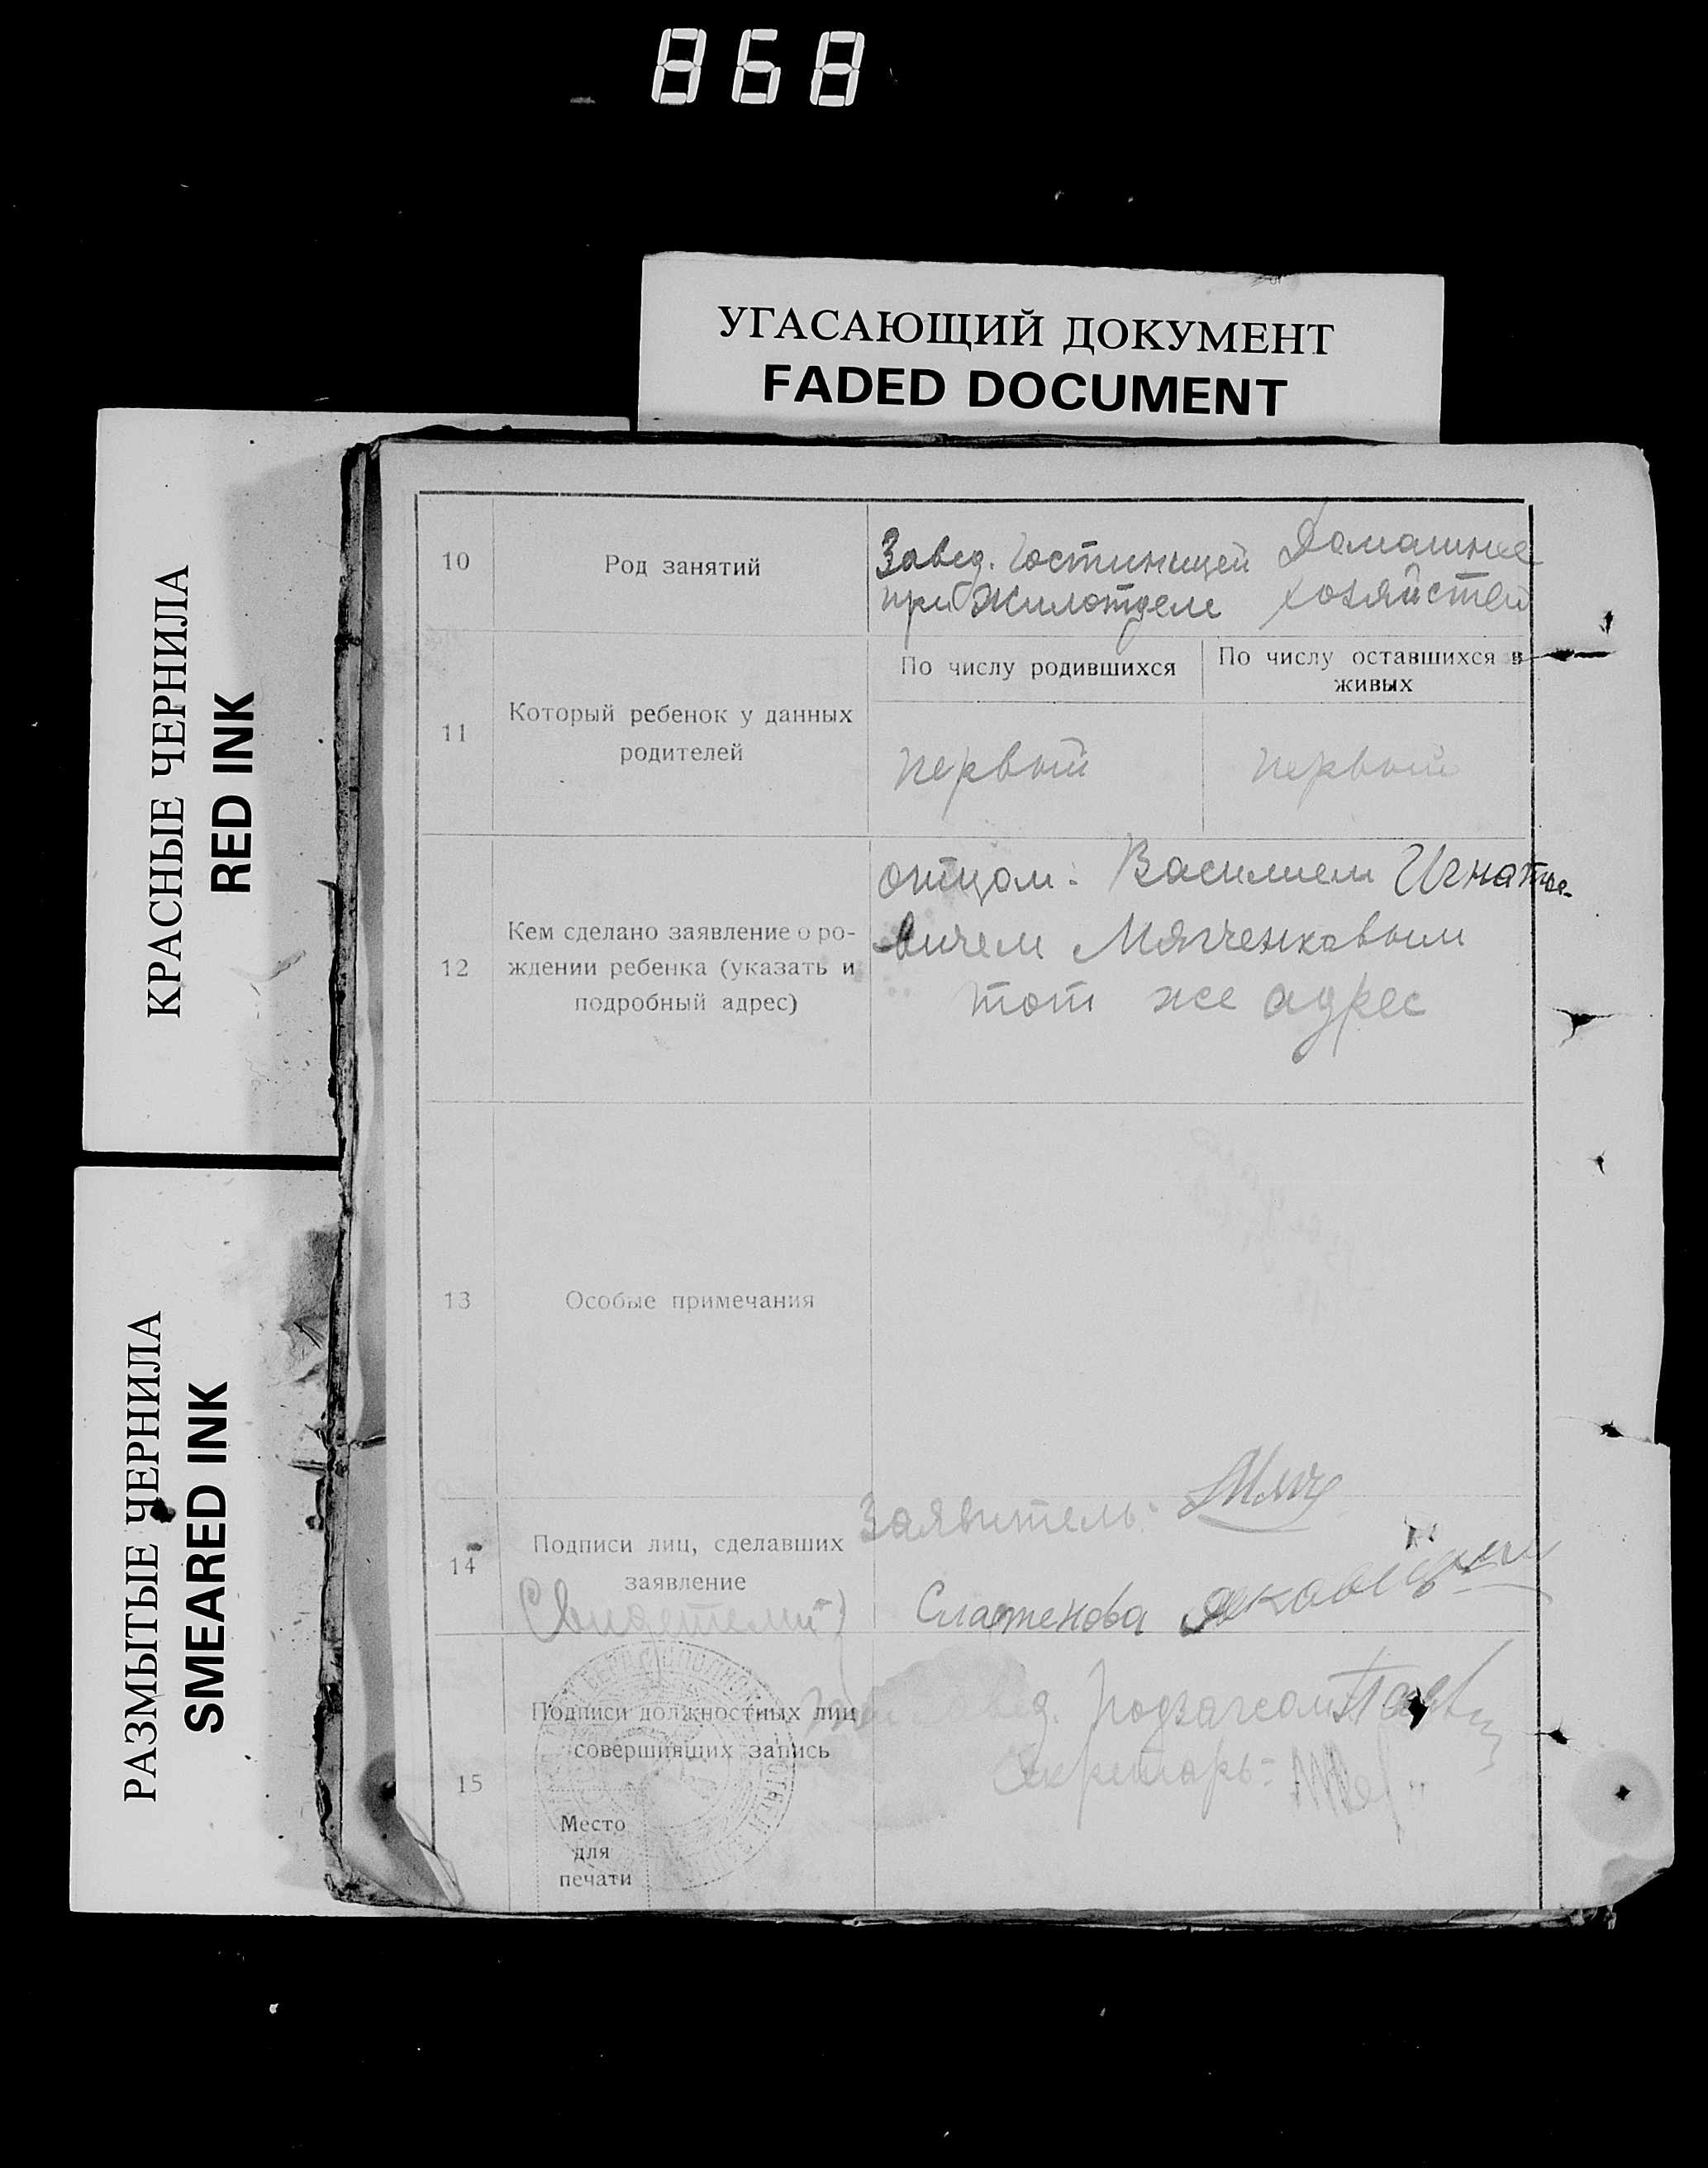 868
УГАСАЮЩИЙ ДОКУМЕНТ
FADED DOCUMENT
КРАСНЫЕ ЧЕРНИЛА
RED INK
РАЗМЫТЫЕ ЧЕРНИЛА
SMEARED INK
10
Род занятий
Завед. Гостиницей
при Жилотделе
Домашнее
хозяйство
11
Который ребенок у данных
родителей
По числу родившихся
По числу оставшихся в
живых
первый
первый
12
Кем сделано заявление о ро-
ждении ребенка (указать и
подробный адрес)
отцом: Василием Игнатье-
вичем Мягченковым
тот же адрес
13
Особые примечания
14
Подписи лиц, сделавших
заявление
(Свидетели)
Заявитель:
Сластенова
15
Подписи должностных лиц
совершивших запись
Место
для
печати
Завед.
Секретарь: